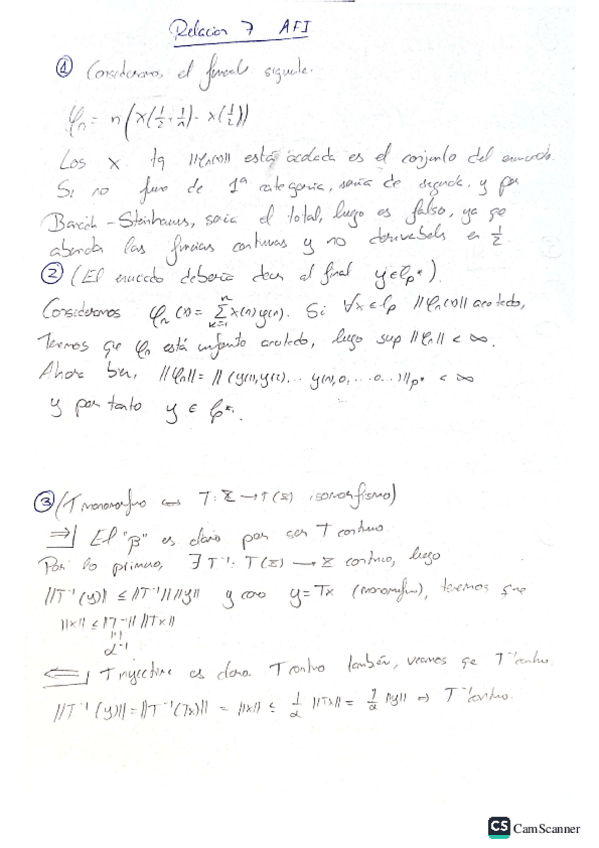 Relacion 7 AFI
① Consideramos el funcional siguiente.
φn = n(x(1/2+1/n) - x(1/2))
Los x tq ||φn(x)|| está acotada es el conjunto del enunciado.
Si no fuera de 1ª categoria, seria de segunda, y por
Banach-Steinhaus, seria el total, luego es falso, ya que
las funcias continuas y no derivabels en 1/2.
② (El enunciado deberia decir al final y∈ℓp*).
Consideramos φn(x) = Σ_{k=1}^{n} x(n)y(n). Si ∀x∈ℓp ||φn(x)|| acotado,
Tenemos que φn está acotado, luego sup ||φn|| < ∞.
Ahora bien, ||φn|| = ||(y(1), y(2)... y(n), 0, ... 0...)||p* < ∞
y por tanto y ∈ ℓp*.
③ (T monomorfismo ⇔ T: X → T(X) isomorfismo)
⇒| El "β" es claro por ser T continuo
Por lo primero, ∃ T⁻¹: T(X) → X continuo, luego
||T⁻¹(y)|| ≤ ||T⁻¹|| ||y|| y como y=Tx (monomorfismo), tenemos que
||x|| ≤ ||T⁻¹|| ||Tx||
α⁻¹
⇐| T inyectiva es claro. T continuo también, veamos que T⁻¹ continuo.
||T⁻¹(y)|| = ||T⁻¹(Tx)|| = ||x|| ≤ 1/α ||Tx|| = 1/α ||y|| ⇒ T⁻¹ continuo.
CS CamScanner